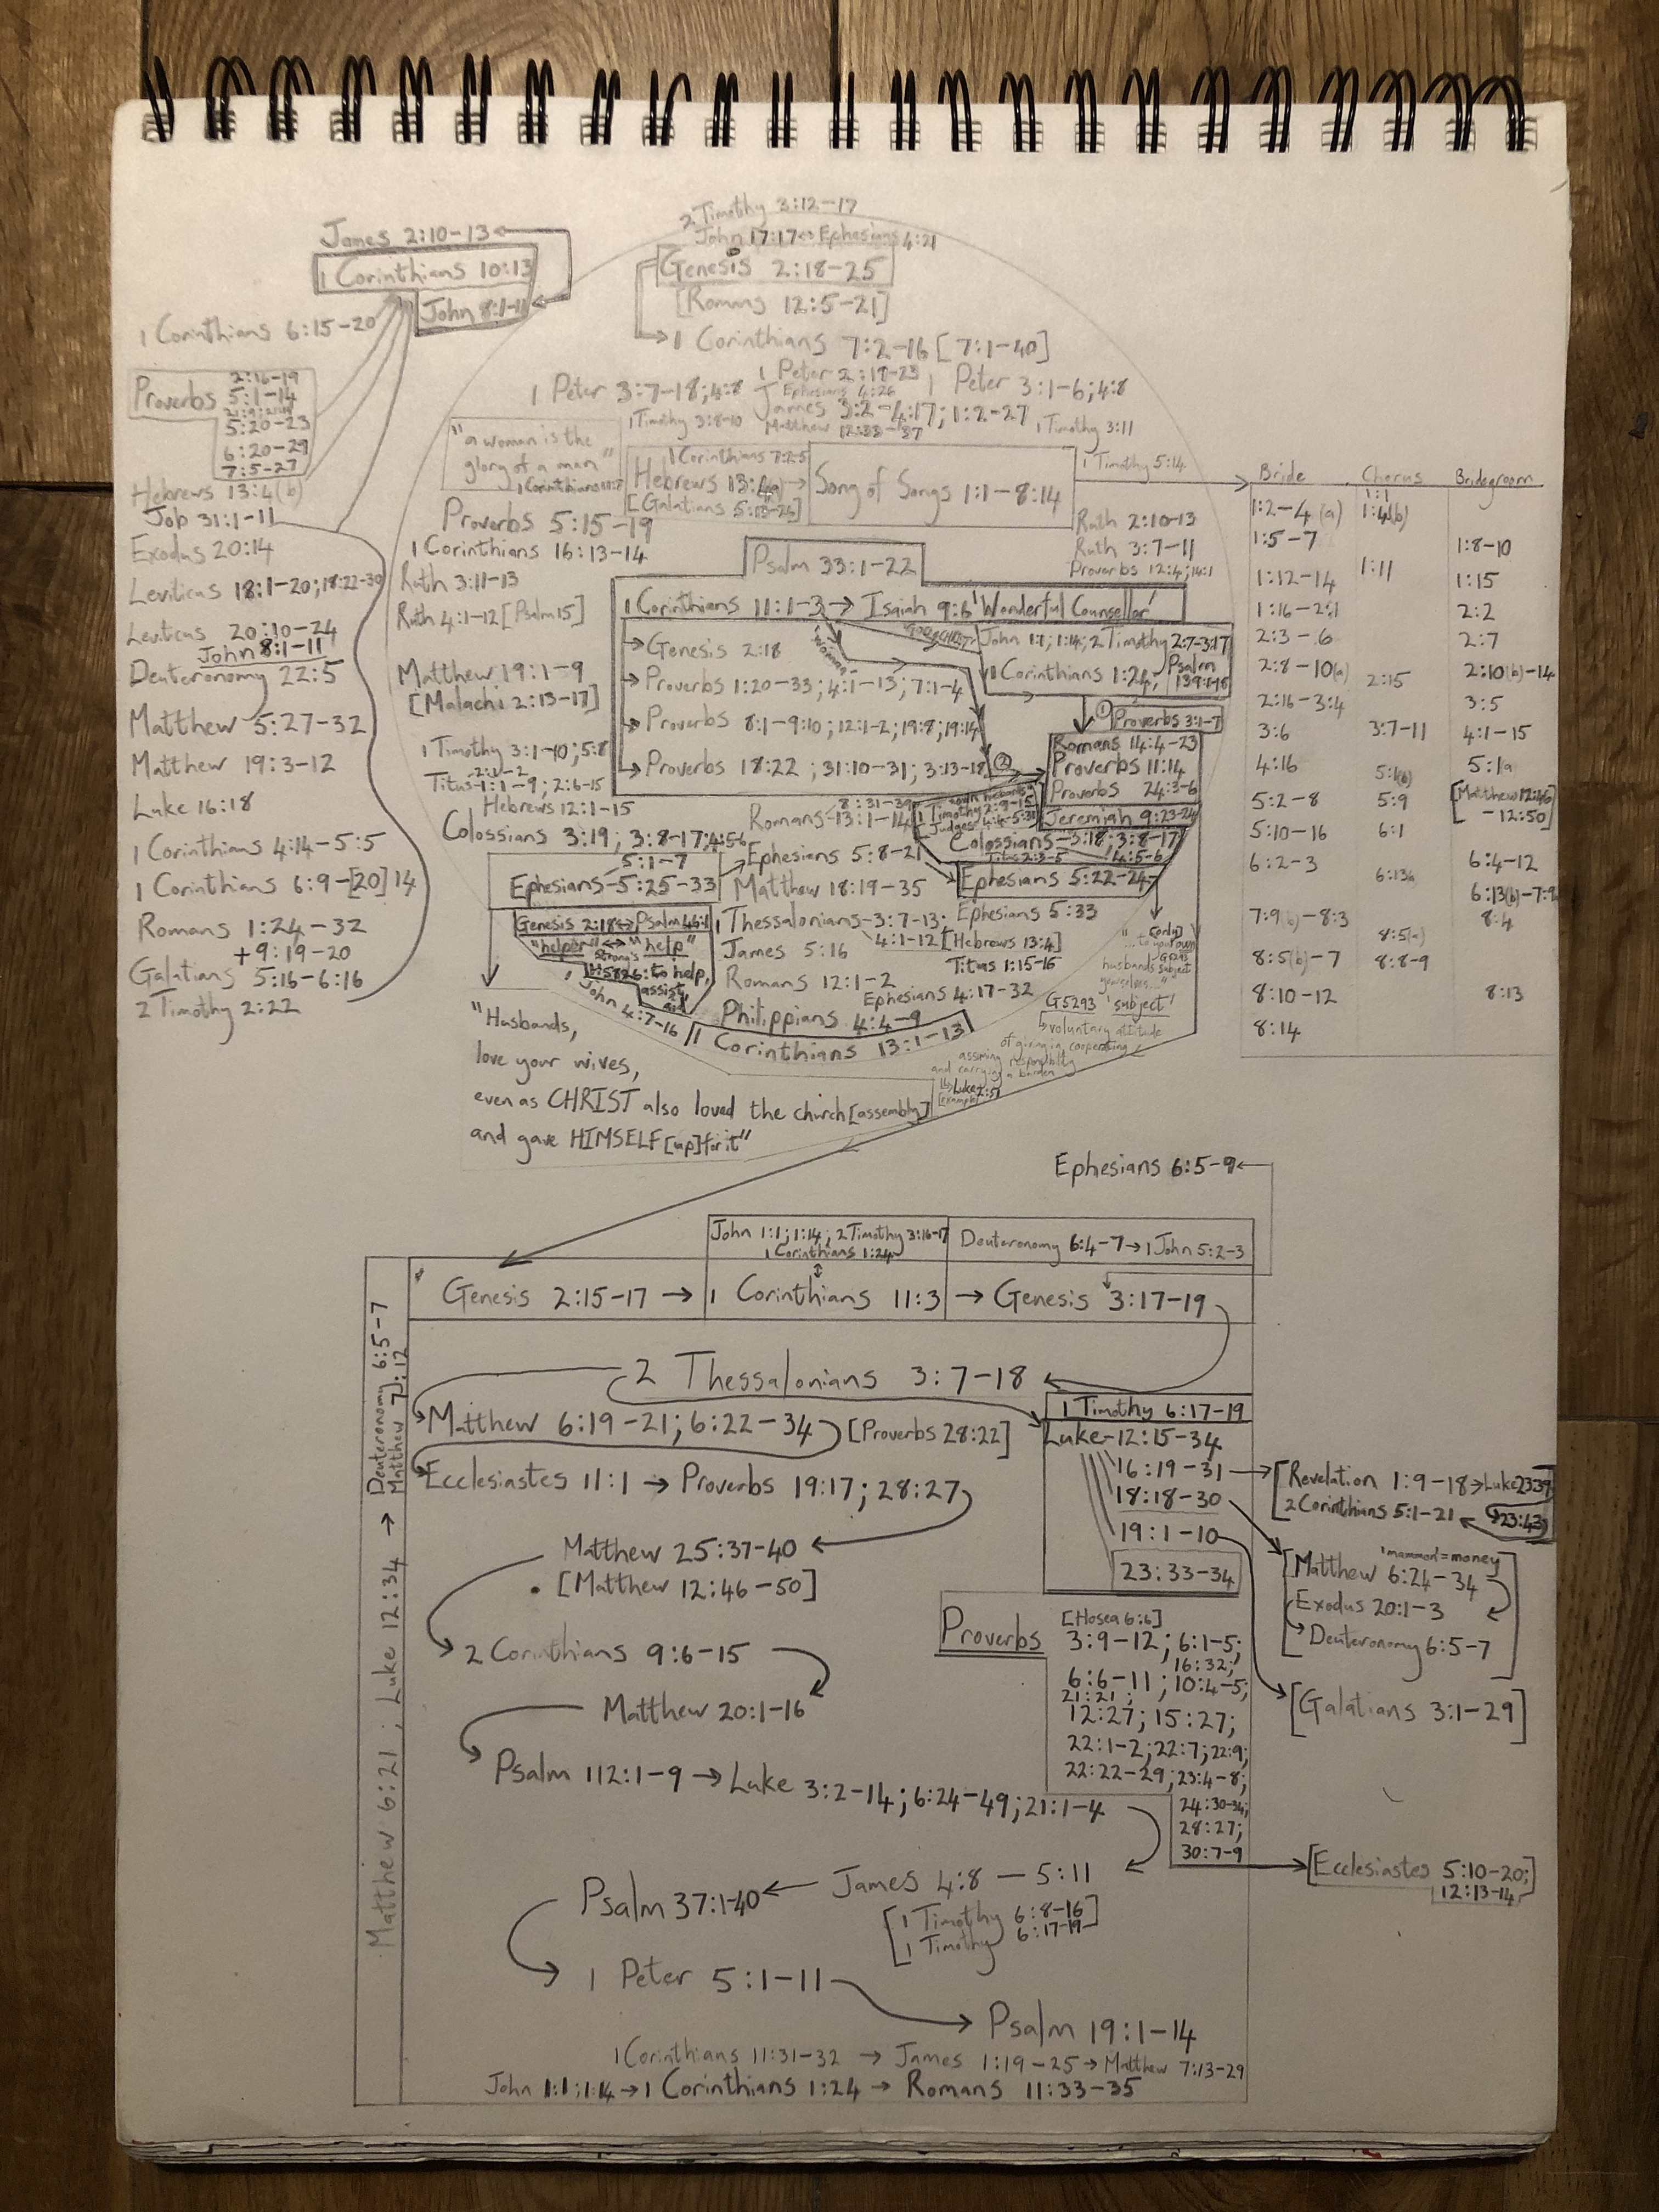 2 Timothy 3:12-17
John 17:17 ↔ Ephesians 4:21
Genesis 2:18-25
[Romans 12:5-21]
→ 1 Corinthians 7:2-16 [7:1-40]
James 2:10-13
1 Corinthians 10:13
John 8:1-11
1 Corinthians 6:15-20
Proverbs
2:16-19
5:1-14
5:20-23
6:20-29
7:5-27
Hebrews 13:4(b)
Job 31:1-11
Exodus 20:14
Leviticus 18:1-20; 18:22-30
Leviticus 20:10-24
John 8:1-11
Deuteronomy 22:5
Matthew 5:27-32
Matthew 19:3-12
Luke 16:18
1 Corinthians 4:14-5:5
1 Corinthians 6:9-[20]14
Romans 1:24-32
+9:19-20
Galatians 5:16-6:16
2 Timothy 2:22
1 Peter 2:18-23
1 Peter 3:7-18; 4:8
Ephesians 4:26
1 Peter 3:1-6; 4:8
James 3:2-4:17; 1:2-27
1 Timothy 3:8-10
Matthew 12:33-37
1 Timothy 3:11
"a woman is the
glory of a man"
1 Corinthians 11:7
1 Corinthians 7:2-5
Hebrews 13:4(a) →
[Galatians 5:13-26]
Song of Songs 1:1-8:14
1 Timothy 5:14
Proverbs 5:15-19
1 Corinthians 16:13-14
Ruth 3:11-13
Ruth 4:1-12 [Psalm 15]
Matthew 19:1-9
[Malachi 2:13-17]
1 Timothy 3:1-10; 5:8
Titus 1:1-9; 2:6-15
2:1-2
Hebrews 12:1-15
Colossians 3:19; 3:8-17; 4:5-6
Ruth 2:10-13
Ruth 3:7-11
Proverbs 12:4; 14:1
Psalm 33:1-22
1 Corinthians 11:1-3 → Isaiah 9:6 'Wonderful Counsellor'
→ Genesis 2:18
→ Proverbs 1:20-33; 4:1-13; 7:1-4
→ Proverbs 8:1-9:10; 12:1-2; 19:8; 19:14
→ Proverbs 18:22; 31:10-31; 3:13-18
'woman'
John 1:1; 1:14; 2 Timothy 2:7-3:17
1 Corinthians 1:24;
Psalm
139:1-18
① Proverbs 3:1-7
②
Romans 14:4-23
Proverbs 11:14
Proverbs 24:3-6
Jeremiah 9:23-24
"own husbands"
1 Timothy 2:9-15
Judges 4:4-5:31
Colossians 3:18; 3:8-17
Titus 2:3-5
4:5-6
Ephesians 5:22-24
Romans 13:1-14
8:31-39
5:1-7
Ephesians 5:25-33
→ Ephesians 5:8-21
Matthew 18:19-35
1 Thessalonians 3:7-13;
4:1-12 [Hebrews 13:4]
Ephesians 5:33
James 5:16
Titus 1:15-16
Romans 12:1-2
Ephesians 4:17-32
Philippians 4:4-9
1 Corinthians 13:1-13
Genesis 2:18 ↔ Psalm 46:1
"helper" ↔ "help"
Strong's
H5826: to help,
assist,
aid
1 John 4:7-16
"...to your own
[only]
husbands subject
yourselves..."
G5293 'subject'
↳ voluntary attitude
of giving in, cooperating,
assuming responsibility
and carrying a burden
↳ Luke 2:51
[example]
"Husbands,
love your wives,
even as CHRIST also loved the church [assembly]
and gave HIMSELF [up] for it"
Bride Chorus Bridegroom
1:1
1:2-4(a) 1:4(b)
1:5-7 1:8-10
1:11
1:12-14 1:15
1:16-2:1 2:2
2:3-6 2:7
2:8-10(a) 2:10(b)-14
2:15
2:16-3:4 3:5
3:6 3:7-11 4:1-15
4:16 5:1(b) 5:1a
5:2-8 5:9 [Matthew 12:46
-12:50]
5:10-16 6:1
6:2-3 6:4-12
6:13a
6:13(b)-7:9a
7:9(b)-8:3 8:4
8:5(a)
8:5(b)-7 8:8-9
8:10-12 8:13
8:14
Ephesians 6:5-9
John 1:1; 1:14; 2 Timothy 3:16-17
1 Corinthians 1:24
Deuteronomy 6:4-7 → 1 John 5:2-3
Genesis 2:15-17 → 1 Corinthians 11:3 → Genesis 3:17-19
Matthew 6:21; Luke 12:34 → Deuteronomy 6:5-7
Matthew 7:12
2 Thessalonians 3:7-18
Matthew 6:19-21; 6:22-34 [Proverbs 28:22]
Ecclesiastes 11:1 → Proverbs 19:17; 28:27
Matthew 25:37-40
• [Matthew 12:46-50]
2 Corinthians 9:6-15
Matthew 20:1-16
Psalm 112:1-9 → Luke 3:2-14; 6:24-49; 21:1-4
James 4:8 — 5:11
Psalm 37:1-40
[1 Timothy 6:8-16]
[1 Timothy 6:17-19
1 Peter 5:1-11
Psalm 19:1-14
1 Corinthians 11:31-32 → James 1:19-25 → Matthew 7:13-29
John 1:1; 1:14 → 1 Corinthians 1:24 → Romans 11:33-35
1 Timothy 6:17-19
Luke 12:15-34
16:19-31
18:18-30
19:1-10
23:33-34
[Revelation 1:9-18 → Luke 23:39
[2 Corinthians 5:1-21
23:43
'mammon' = money
[Matthew 6:24-34
Exodus 20:1-3
Deuteronomy 6:5-7]
[Galatians 3:1-29]
Proverbs
[Hosea 6:6]
3:9-12; 6:1-5;
16:32;
6:6-11; 10:4-5;
21:21;
12:27; 15:27;
22:1-2; 22:7; 22:9;
22:22-29; 23:4-8;
24:30-34;
28:27;
30:7-9
[Ecclesiastes 5:10-20;]
12:13-14